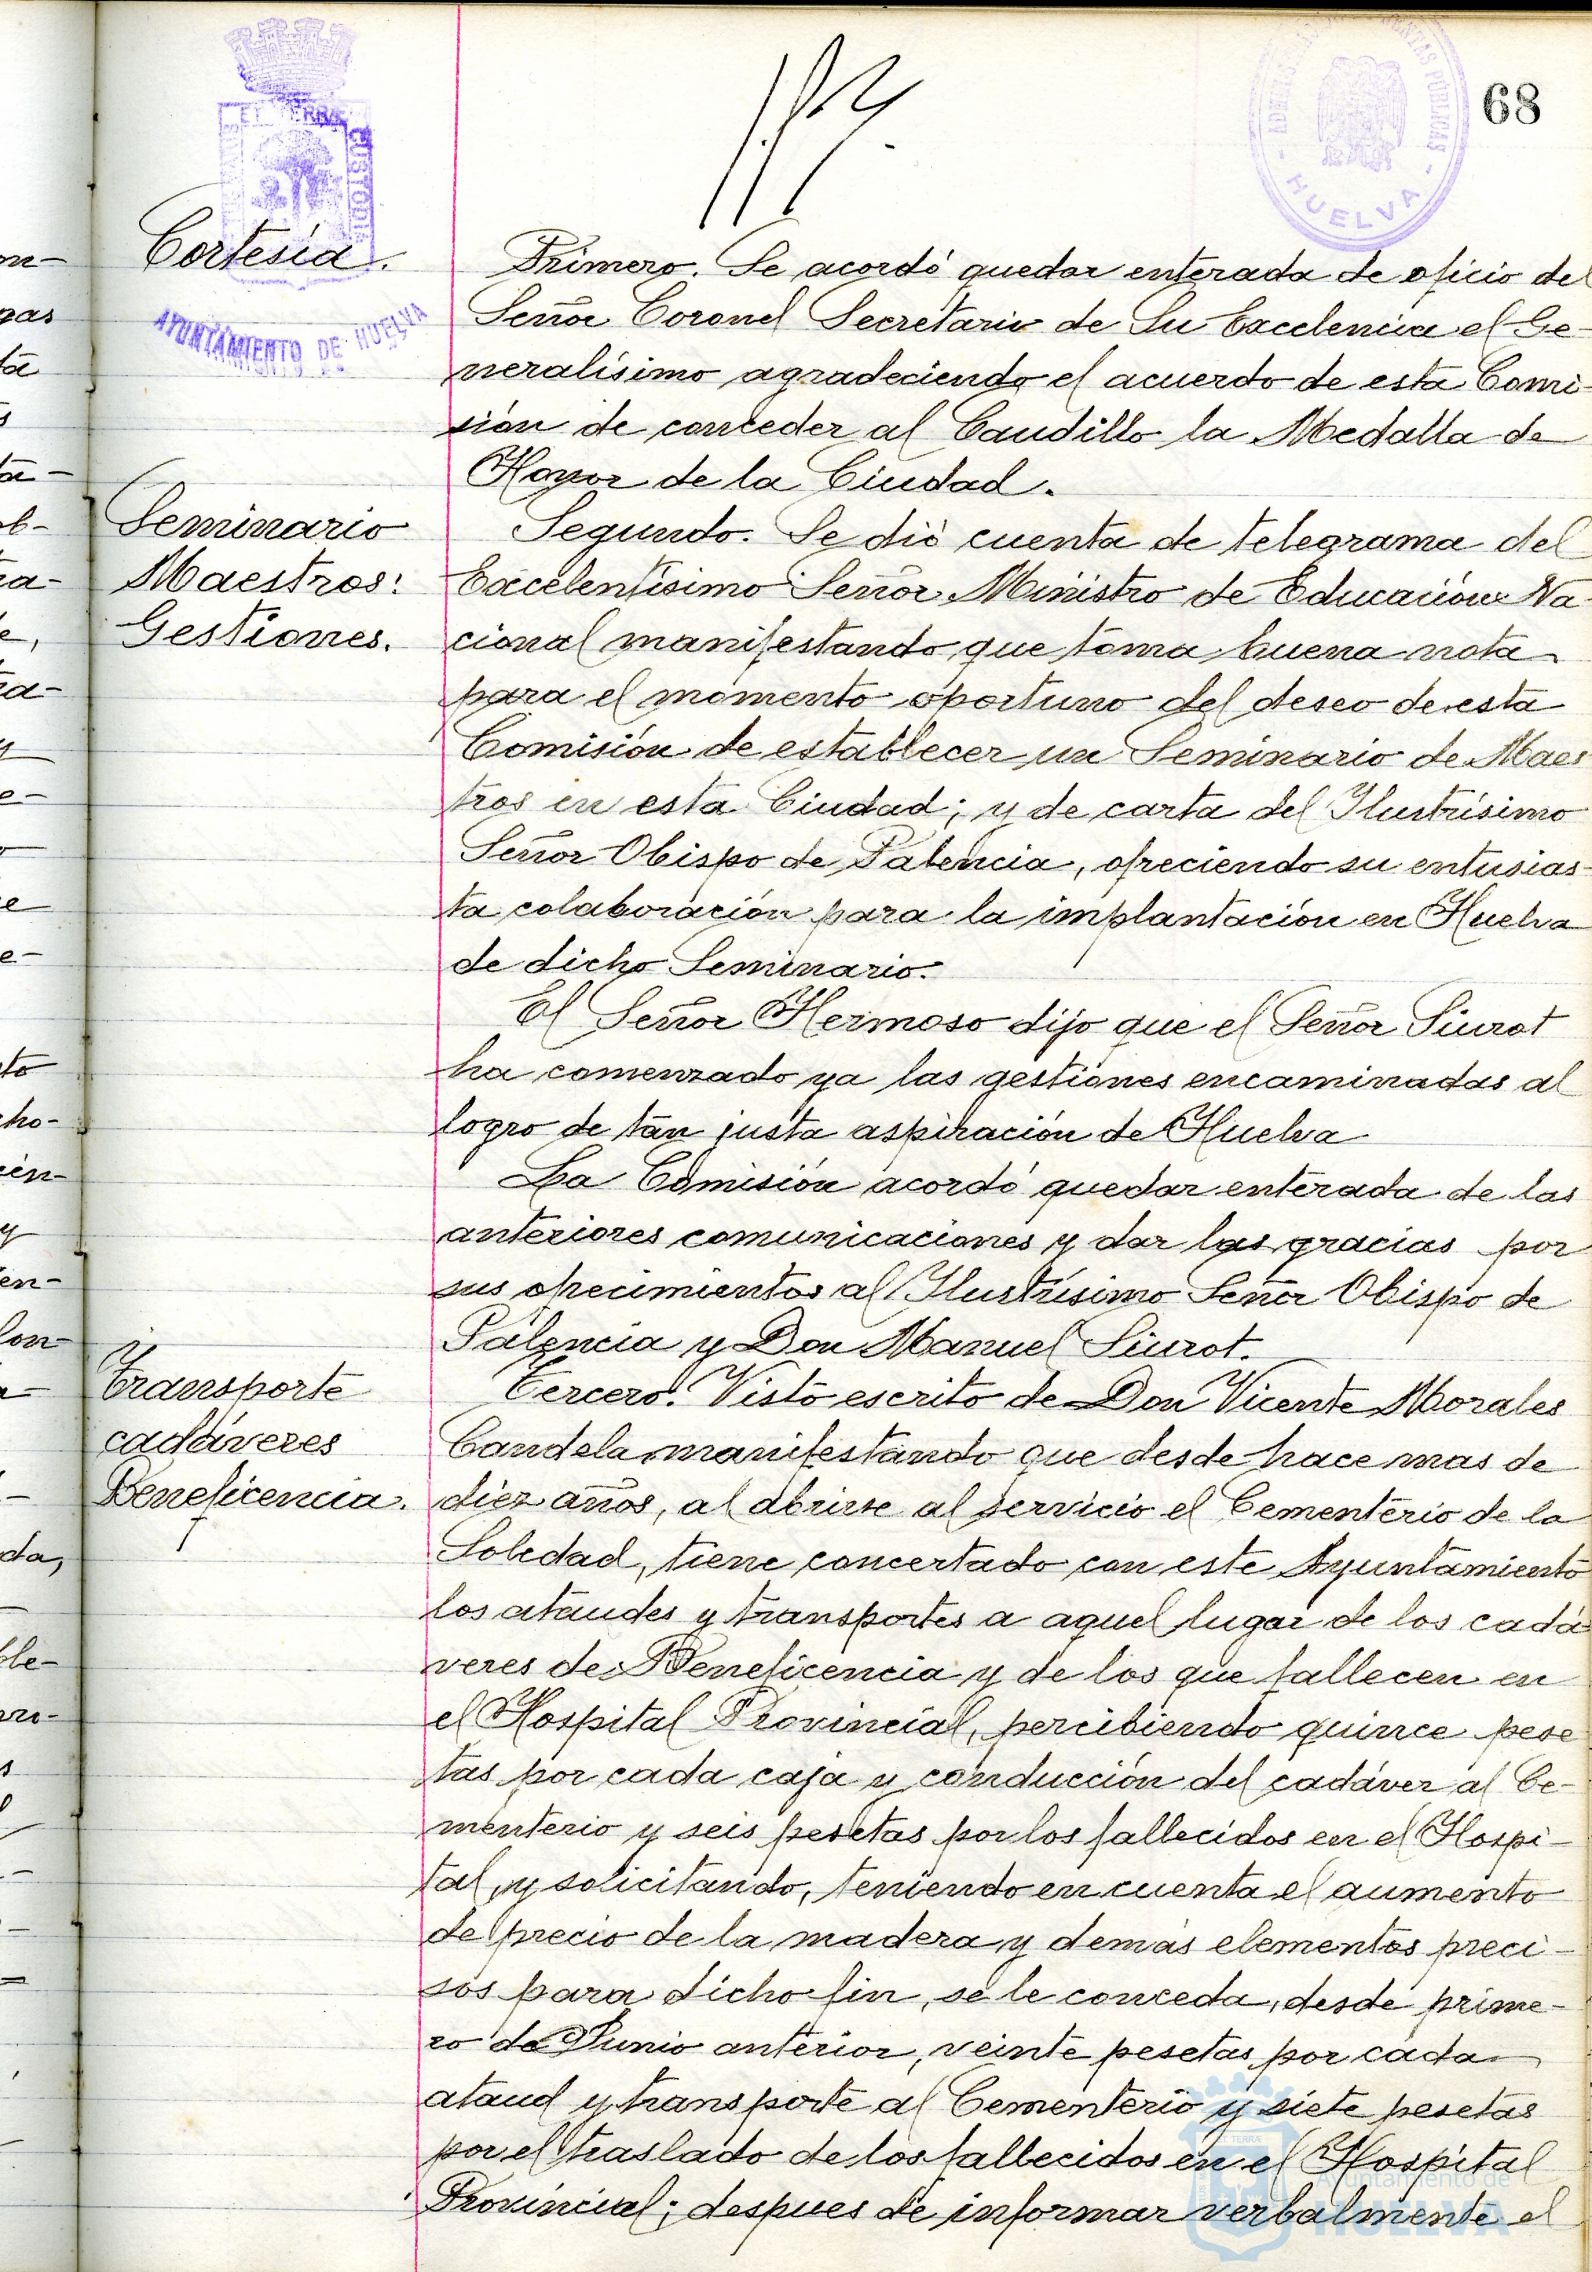 68
ET TERRÆ
CUSTODIA
AYUNTAMIENTO DE HUELVA
HUELVA
Cortesía.
Primero. Se acordó quedar enterada de oficio del
Señor Coronel Secretario de Su Excelencia el Ge-
neralísimo agradeciendo el acuerdo de esta Comi-
sión de conceder al Caudillo la Medalla de
Honor de la Ciudad.
Seminario
Maestros:
Gestiones.
Segundo. Se dió cuenta de telegrama del
Excelentísimo Señor Ministro de Educación Na-
cional manifestando que toma buena nota
para el momento oportuno del deseo de esta
Comisión de establecer un Seminario de Maes
tros en esta Ciudad; y de carta del Ilustrísimo
Señor Obispo de Palencia, ofreciendo su entusias-
ta colaboración para la implantación en Huelva
de dicho Seminario.
El Señor Hermoso dijo que el Señor Siurot
ha comenzado ya las gestiones encaminadas al
logro de tan justa aspiración de Huelva
La Comisión acordó quedar enterada de las
anteriores comunicaciones y dar las gracias por
sus ofrecimientos al Ilustrísimo Señor Obispo de
Palencia y Don Manuel Siurot.
Transporte
cadáveres
Beneficencia.
Tercero. Visto escrito de Don Vicente Morales
Candela manifestando que desde hace mas de
diez años, al abrirse al servicio el Cementerio de la
Soledad, tiene concertado con este Ayuntamiento
los ataudes y transportes a aquel lugar de los cadá
veres de Beneficencia y de los que fallecen en
el Hospital Provincial, percibiendo quince pese
tas por cada caja y conducción del cadáver al Ce-
menterio y seis pesetas por los fallecidos en el Hospi-
tal, y solicitando, teniendo en cuenta el aumento
de precio de la madera y demás elementos preci-
sos para dicho fin, se le conceda, desde prime-
ro de Junio anterior, veinte pesetas por cada
ataud y transporte al Cementerio y siete pesetas
por el traslado de los fallecidos en el Hospital
Provincial; despues de informar verbalmente el
Ayuntamiento de
HUELVA